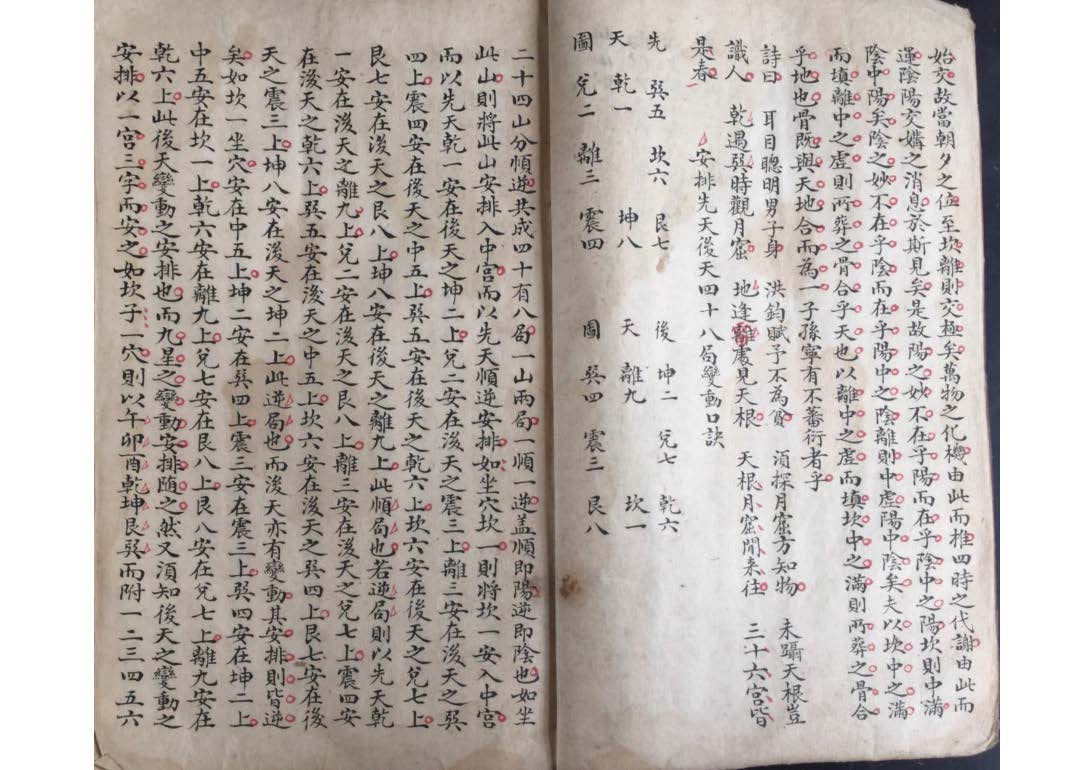 始交故當朝夕之位至坎離則交極矣萬物之化機由此而推四時之代謝由此而
運陰陽交媾之消息於斯見矣是故陽之妙不在乎陽而在乎陰中之陽坎則中滿
陰中陽矣陰之妙不在乎陰而在乎陽中之陰離則中虛陽中陰矣夫以坎中之滿
而填離中之虛則所葬之骨合乎天也以離中之虛而填坎中之滿則所葬之骨合
乎地也骨既與天地合而為一子孫寧有不蕃衍者乎
詩曰 耳目聰明男子身 洪鈞賦予不為貧 須探月窟方知物 未躡天根豈
識人 乾遇巽時觀月窟 地逢雷處見天根 天根月窟閒來往 三十六宮皆
是春 安排先天後天四十八局變動口訣
先 巽五 坎六 艮七 後 坤二 兌七 乾六
天 乾一 坤八 天 離九 坎一
圖 兌二 離三 震四 圖 巽四 震三 艮八
二十四山分順逆共成四十有八局一山兩局一順一逆盖順即陽逆即陰也如坐
此山則將此山安排入中宮而以先天順逆安排如坐穴坎一則將坎一安入中宮
而以先天乾一安在後天之坤二上兌二安在後天之震三上離三安在後天之巽
四上震四安在後天之中五上巽五安在後天之乾六上坎六安在後天之兌七上
艮七安在後天之艮八上坤八安在後天之離九上此順局也若逆局則以先天乾
一安在後天之離九上兌二安在後天之艮八上離三安在後天之兌七上震四安
在後天之乾六上巽五安在後天之中五上坎六安在後天之巽四上艮七安在後
天之震三上坤八安在後天之坤二上此逆局也而後天亦有變動其安排則皆逆
矣如坎一坐穴安在中五上坤二安在巽四上震三安在震三上巽四安在坤二上
中五安在坎一上乾六安在離九上兌七安在艮八上艮八安在兌七上離九安在
乾六上此後天變動之安排也而九星之變動安排随之然又須知後天之變動之
安排以一宮三字而安之如坎子一穴則以午卯酉乾坤艮巽而附一二三四五六